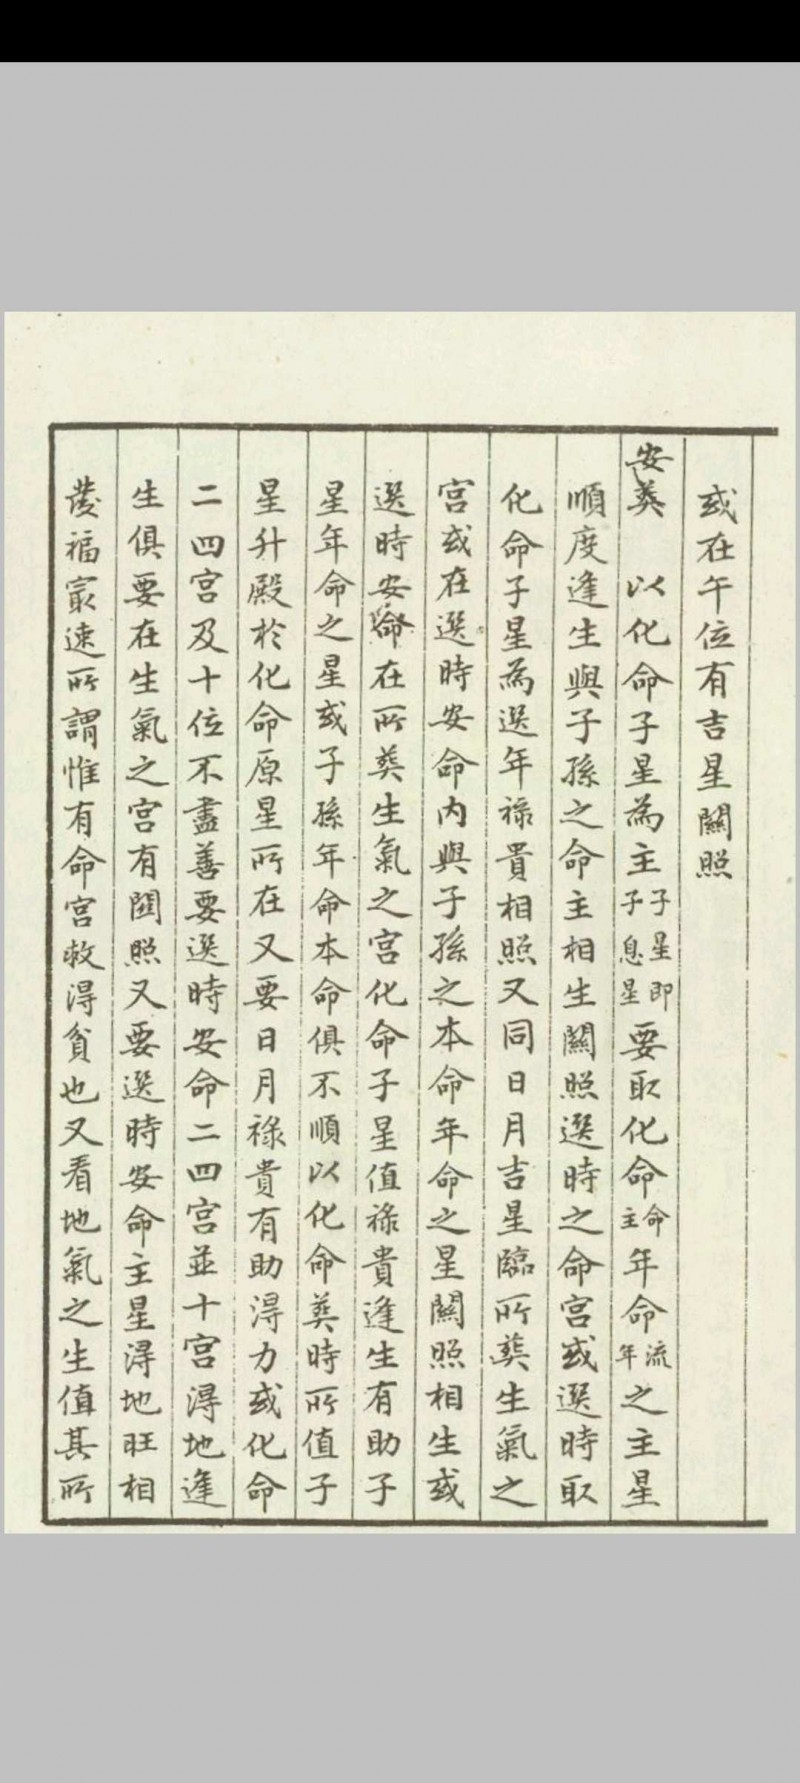 或在午位有吉星關照
安葬　以化命子星為主子星即子息星要取化命命主年命流年之主星
順度逢生與子孫之命主相生關照選時之命宮或選時取
化命子星為選年祿貴相照又同日月吉星臨所葬生氣之
宮或在選時安命內與子孫之本命年命之星關照相生或
選時安命在所葬生氣之宮化命子星值祿貴逢生有助子
星年命之星或子孫年命本命俱不順以化命葬時所值子
星升殿於化命原星所在又要日月祿貴有助得力或化命
二四宮及十位不盡善要選時安命二四宮並十宮得地逢
生俱要在生氣之宮有關照又要選時安命主星得地旺相
發福最速所謂惟有命宮救得貧也又看地氣之生值其所